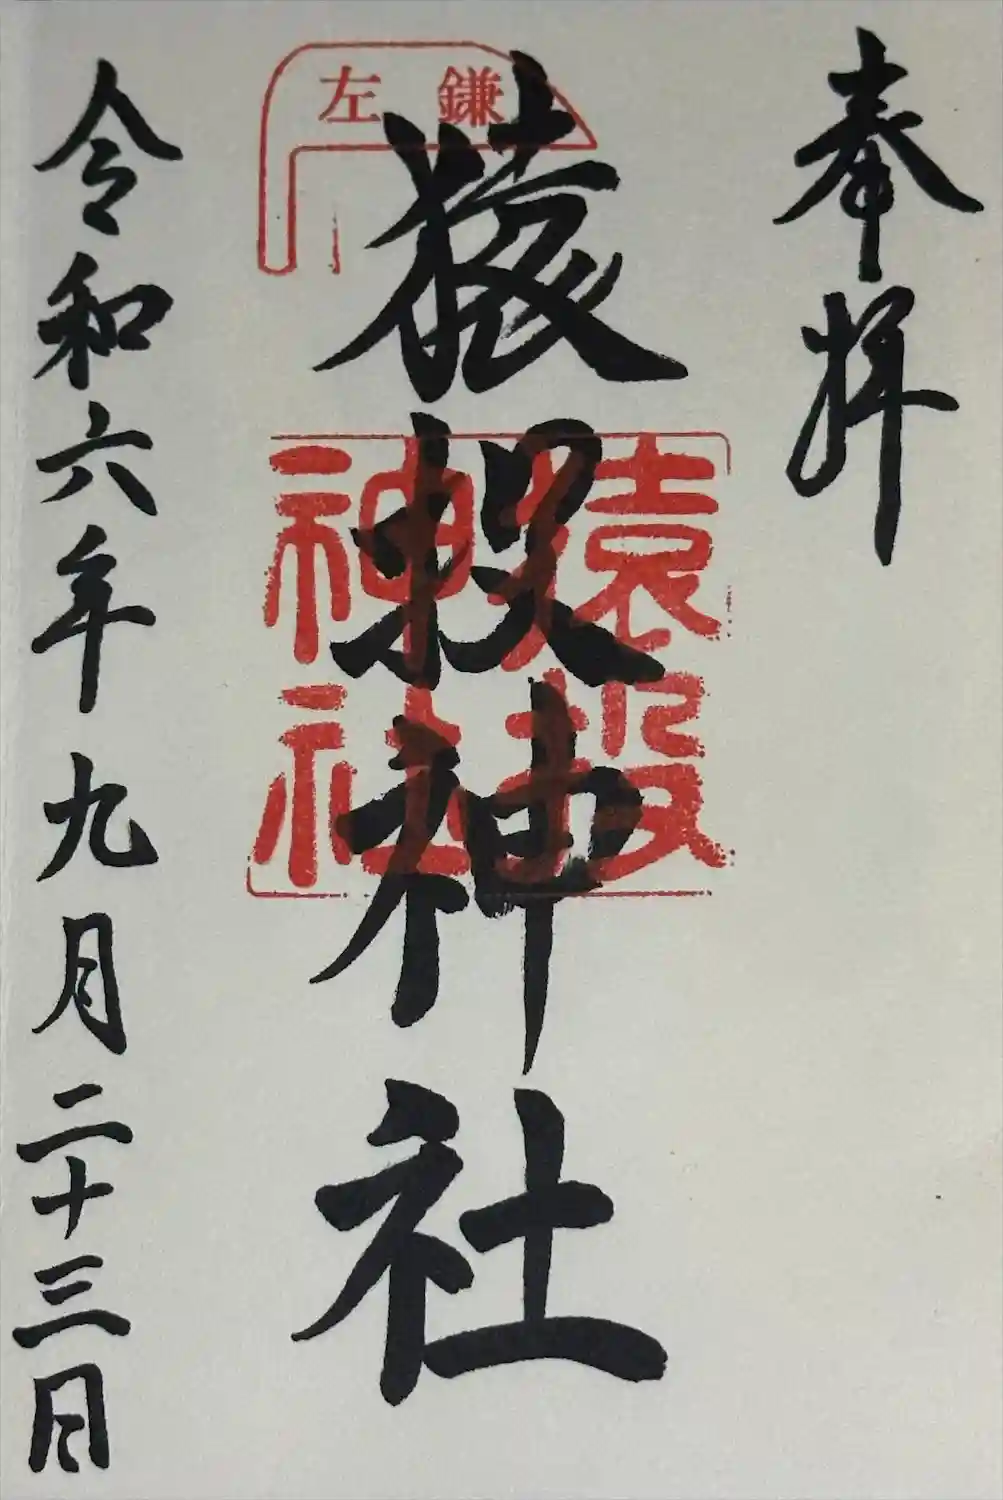 奉拝
猿投神社
左鎌
猿投神社
令和六年九月二十三日